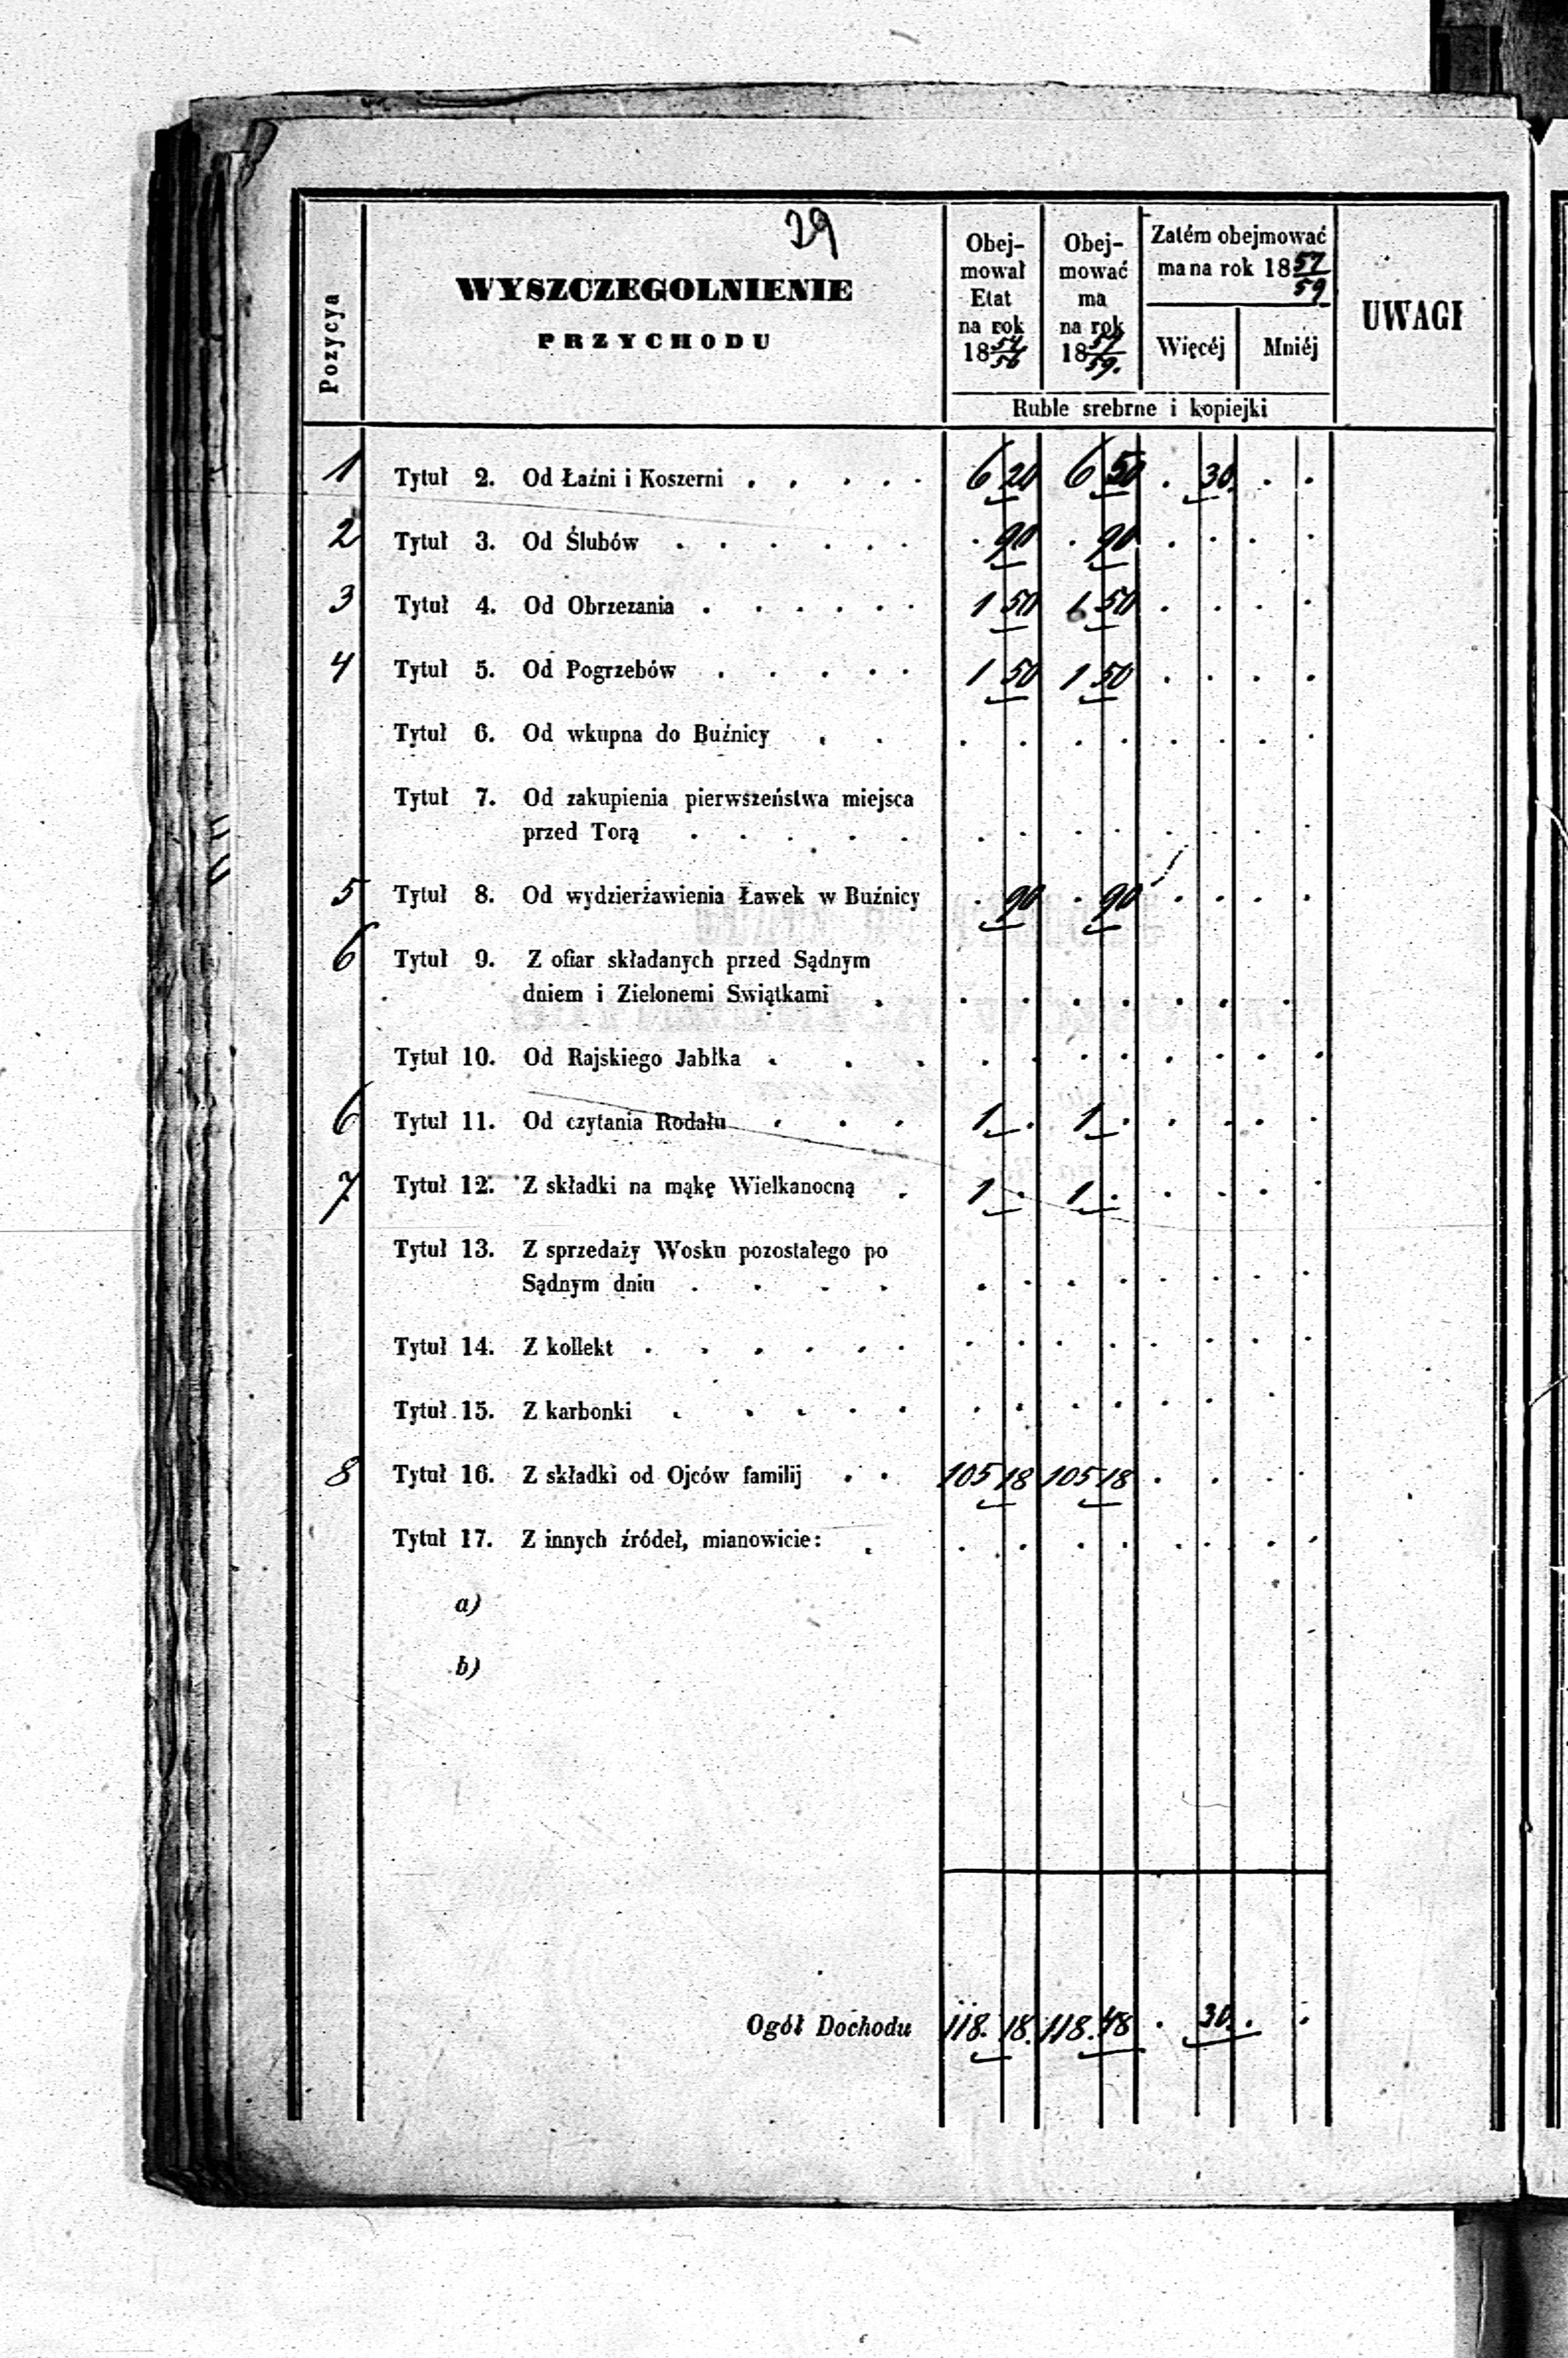 29
Pozycya
WYSZCZEGOLNIENIE
PRZYCHODU
Obej-
mował
Etat
na rok
18 54/56
Obej-
mować
ma
na rok
18 57/59.
Zatém obejmować
ma na rok 18 57/59
Więcéj Mniéj
UWAGI
Ruble srebrne i kopiejki
1 Tytuł 2. Od Łaźni i Koszerni . . . . . 6 20 6 50 . 30 . .
2 Tytuł 3. Od Ślubów . . . . . . . 90 . 90 . . . .
3 Tytuł 4. Od Obrzezania . . . . . . 1 50 1 50 . . . .
4 Tytuł 5. Od Pogrzebów . . . . . 1 50 1 50 . . . .
Tytuł 6. Od wkupna do Buźnicy . . . . . . . . . .
Tytuł 7. Od zakupienia pierwszeństwa miejsca
przed Torą . . . . . . . . . . . . .
5 Tytuł 8. Od wydzierżawienia Ławek w Buźnicy . 90 . 90 . . . .
6 Tytuł 9. Z ofiar składanych przed Sądnym
dniem i Zielonemi Swiątkami . . . . . . . .
Tytuł 10. Od Rajskiego Jabłka . . . . . . . . . . .
6 Tytuł 11. Od czytania Rodału . . . 1 . 1 . . . . .
7 Tytuł 12. Z składki na mąkę Wielkanocną . 1 . 1 . . . . .
Tytuł 13. Z sprzedaży Wosku pozostałego po
Sądnym dniu . . . . . . . . . . . .
Tytuł 14. Z kollekt . . . . . . . . . . . . . .
Tytuł 15. Z karbonki . . . . . . . . . . . .
8 Tytuł 16. Z składki od Ojców familij . . 105 18 105 18 . . . .
Tytuł 17. Z innych źródeł, mianowicie: . . . . . . . . .
a)
b)
Ogół Dochodu 118. 18. 118. 48 . 30. . .